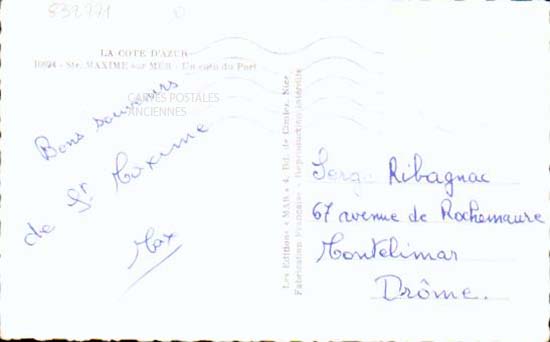 832771
LA COTE D'AZUR
10924 - Ste. MAXIME sur MER - Un coin du Port
CARTES POSTALES
ANCIENNES
Bons souvenirs
de St Maxime
Max
Les Editions "MAR" 4, Bd. de Cimiez, Nice
Fabrication Française - Reproduction interdite
Serge Ribagnac
67 avenue de Rochemaure
Montelimar
Drôme.